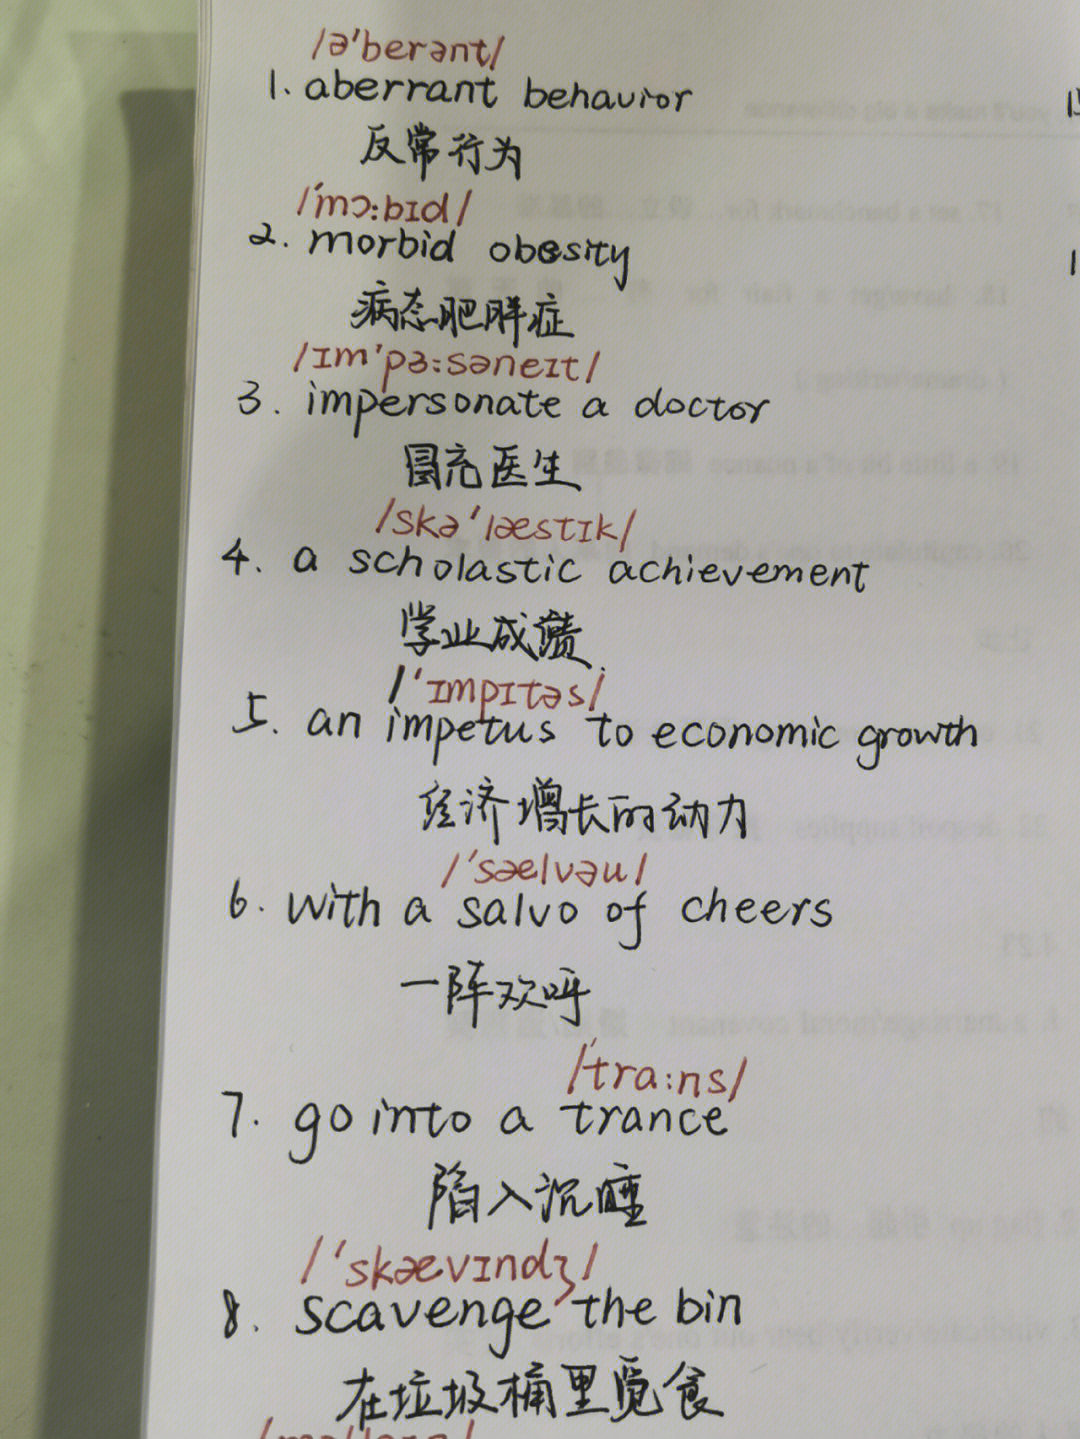 /ə'berənt/
1. aberrant behavior
反常行为
/'mɔ:bɪd/
2. morbid obesity
病态肥胖症
/ɪm'pɜ:səneɪt/
3. impersonate a doctor
冒充医生
/skə'læstɪk/
4. a scholastic achievement
学业成绩
/'ɪmpɪtəs/
5. an impetus to economic growth
经济增长的动力
/'sælvəu/
6. with a salvo of cheers
一阵欢呼
/'tra:ns/
7. go into a trance
陷入沉睡
/'skævɪndʒ/
8. scavenge the bin
在垃圾桶里觅食